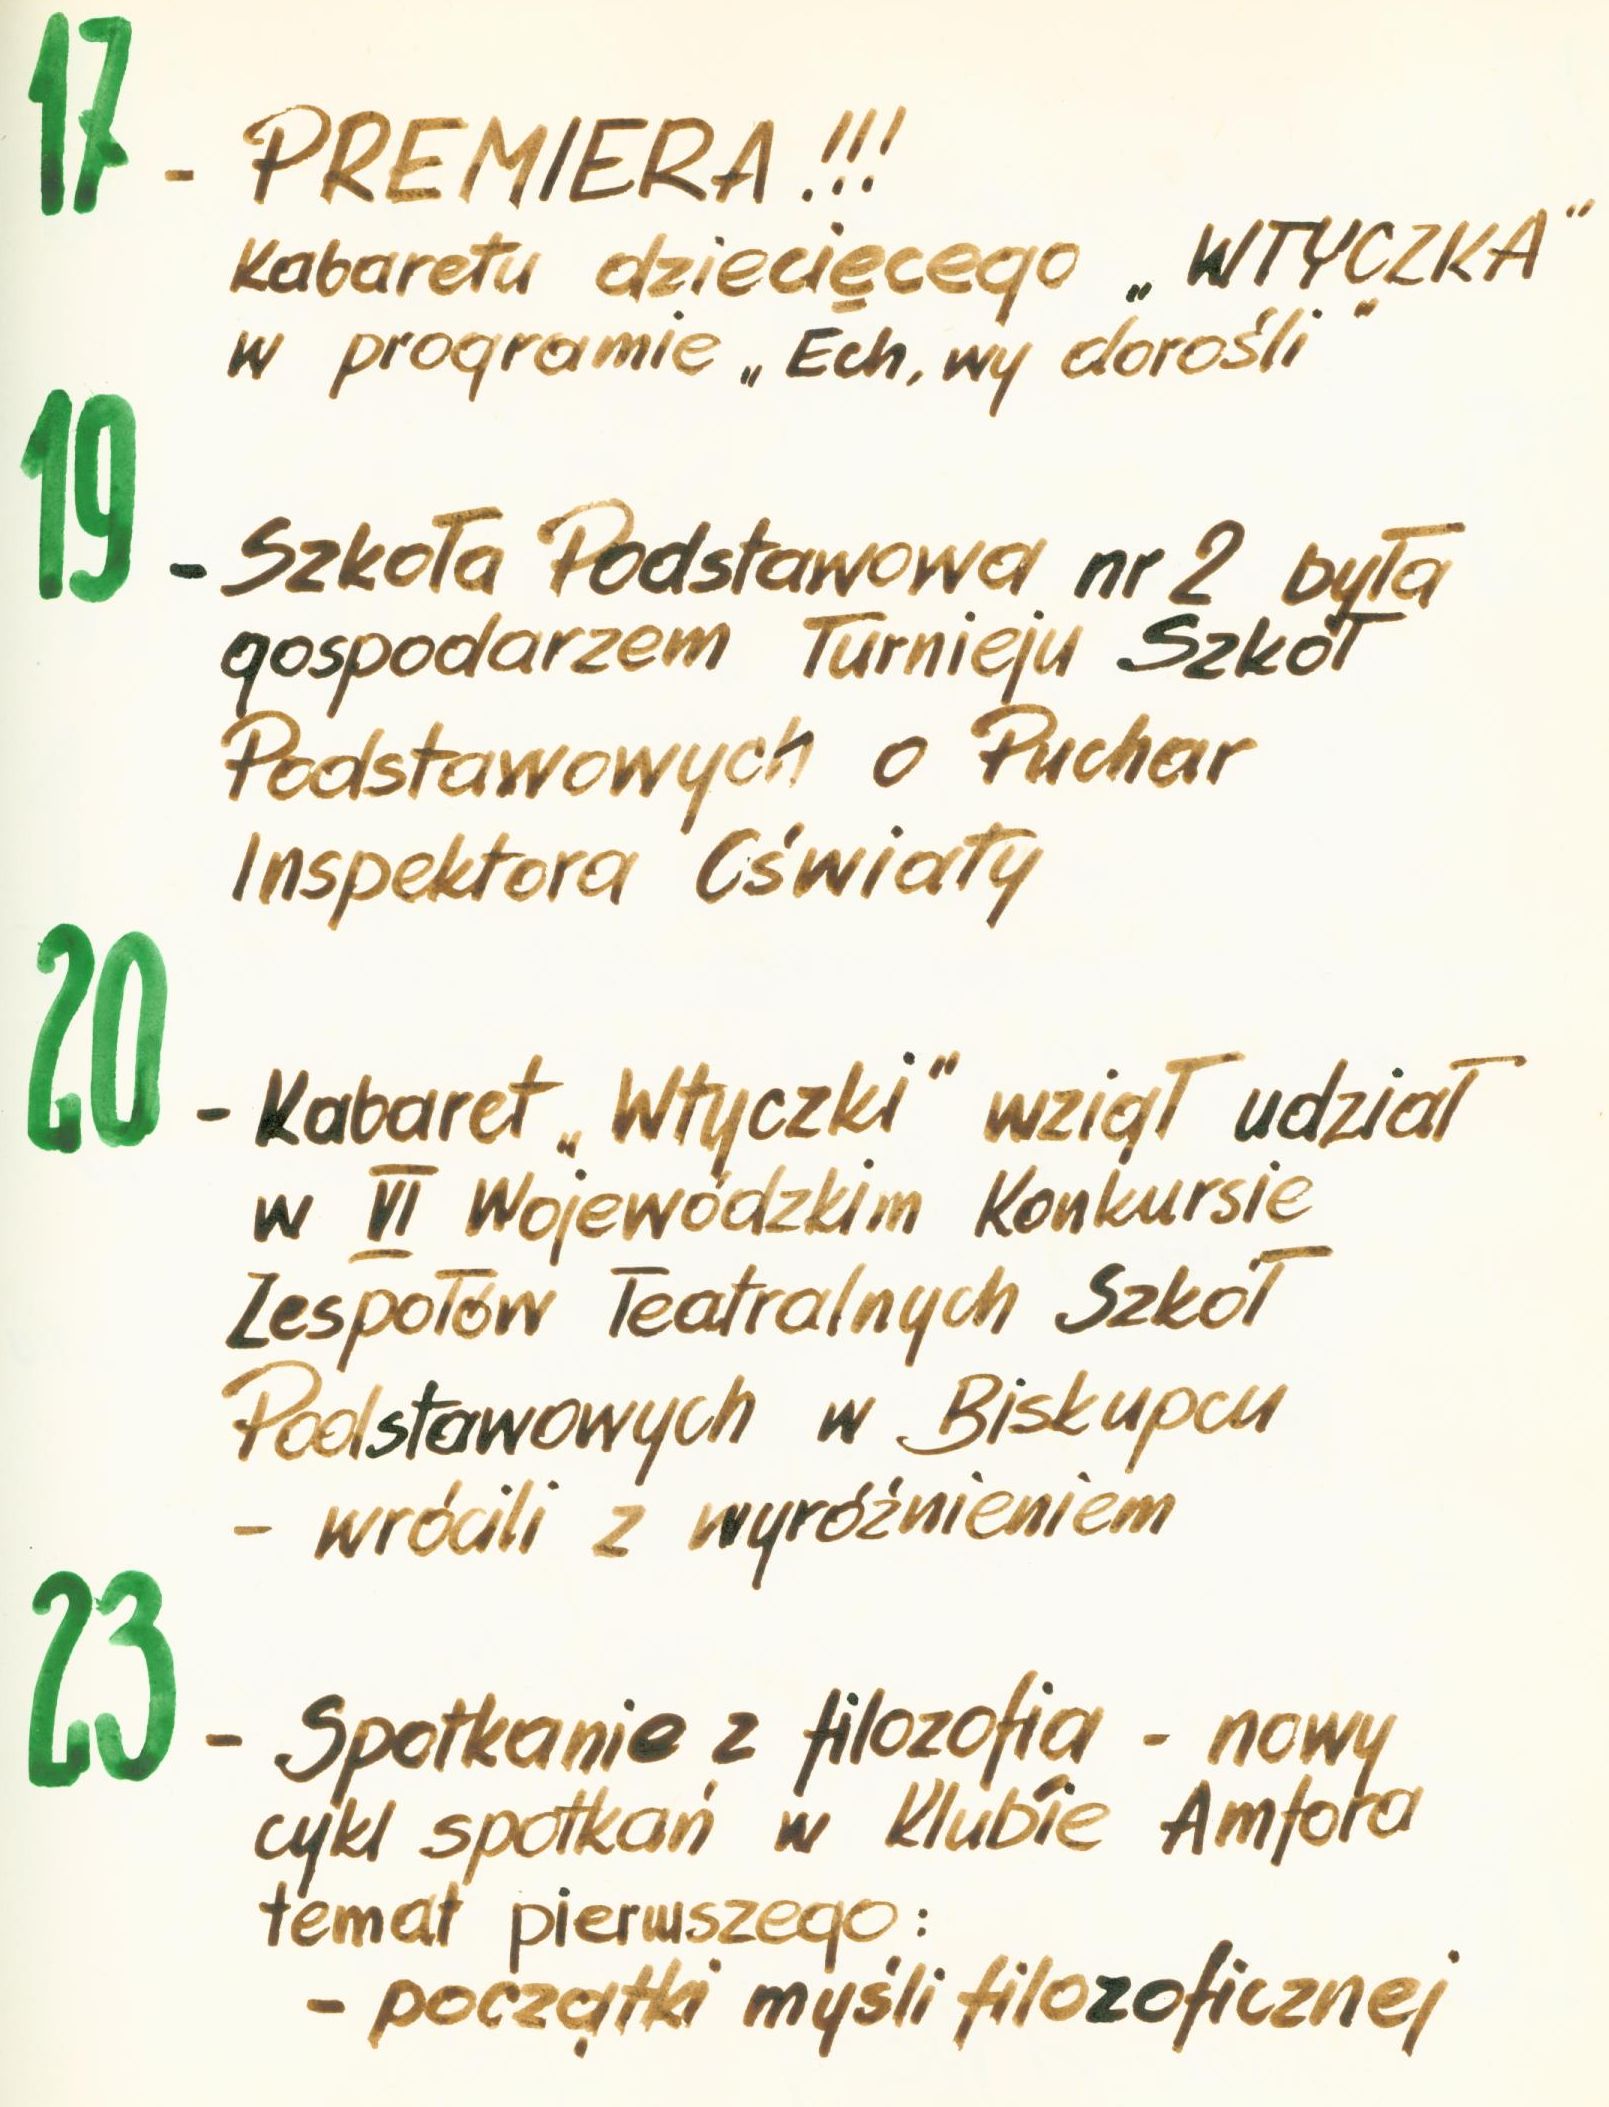 17
- PREMIERA!!!
Kabaretu dziecięcego „WTYCZKA"
w programie „Ech, wy dorośli"
19
- Szkoła Podstawowa nr 2 była
gospodarzem Turnieju Szkół
Podstawowych o Puchar
Inspektora Oświaty
20
- Kabaret „Wtyczki" wziął udział
w VI Wojewódzkim Konkursie
Zespołów Teatralnych Szkół
Podstawowych w Biskupcu
- wrócili z wyróżnieniem
23
- Spotkanie z filozofią - nowy
cykl spotkań w Klubie Amfora
temat pierwszego:
- początki myśli filozoficznej